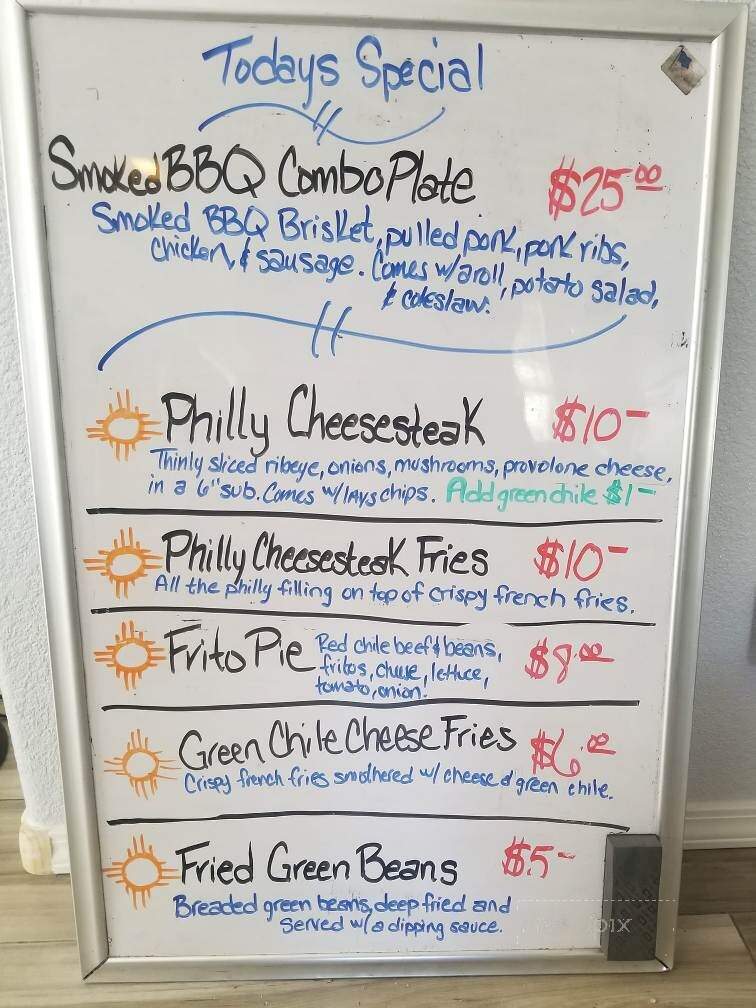 Todays Special
Smoked BBQ Combo Plate $25.00
Smoked BBQ Brisket, pulled pork, pork ribs,
chicken, & sausage. Comes w/a roll, potato salad,
& coleslaw.
Philly Cheesesteak $10-
Thinly sliced ribeye, onions, mushrooms, provolone cheese,
in a 6" sub. Comes w/lays chips. Add green chile $1-
Philly Cheesesteak Fries $10-
All the philly filling on top of crispy french fries.
Frito Pie Red chile beef & beans, $8.00
fritos, cheese, lettuce,
tomato, onion.
Green Chile Cheese Fries $6.00
Crispy french fries smothered w/ cheese & green chile.
Fried Green Beans $5-
Breaded green beans, deep fried and
Served w/a dipping sauce.